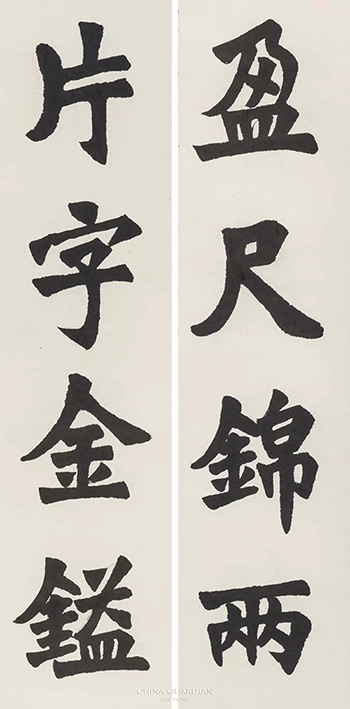 盈尺錦兩
片字金鎰
CHINA GUARDIAN